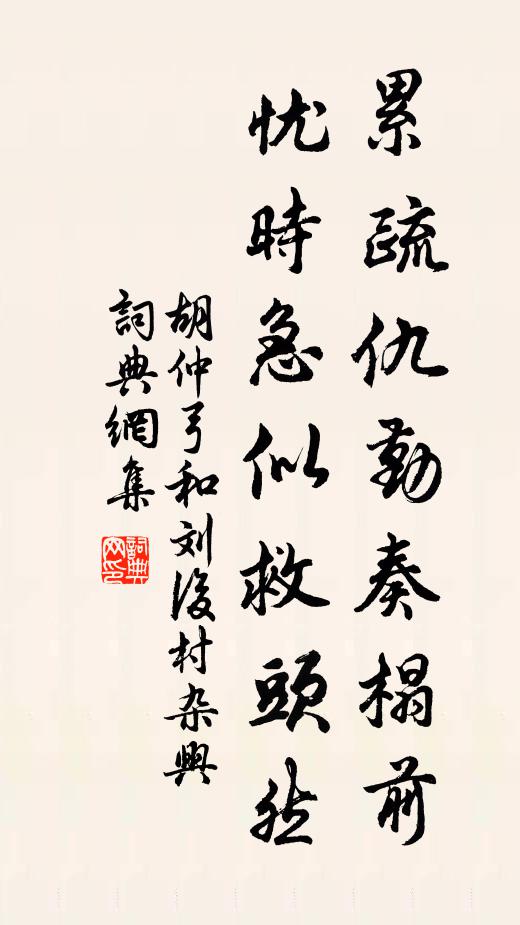 累疏仇勤奏榻前
忧時急似救頭然
胡仲弓和刘後村杂興
詞典網集
詞典网印